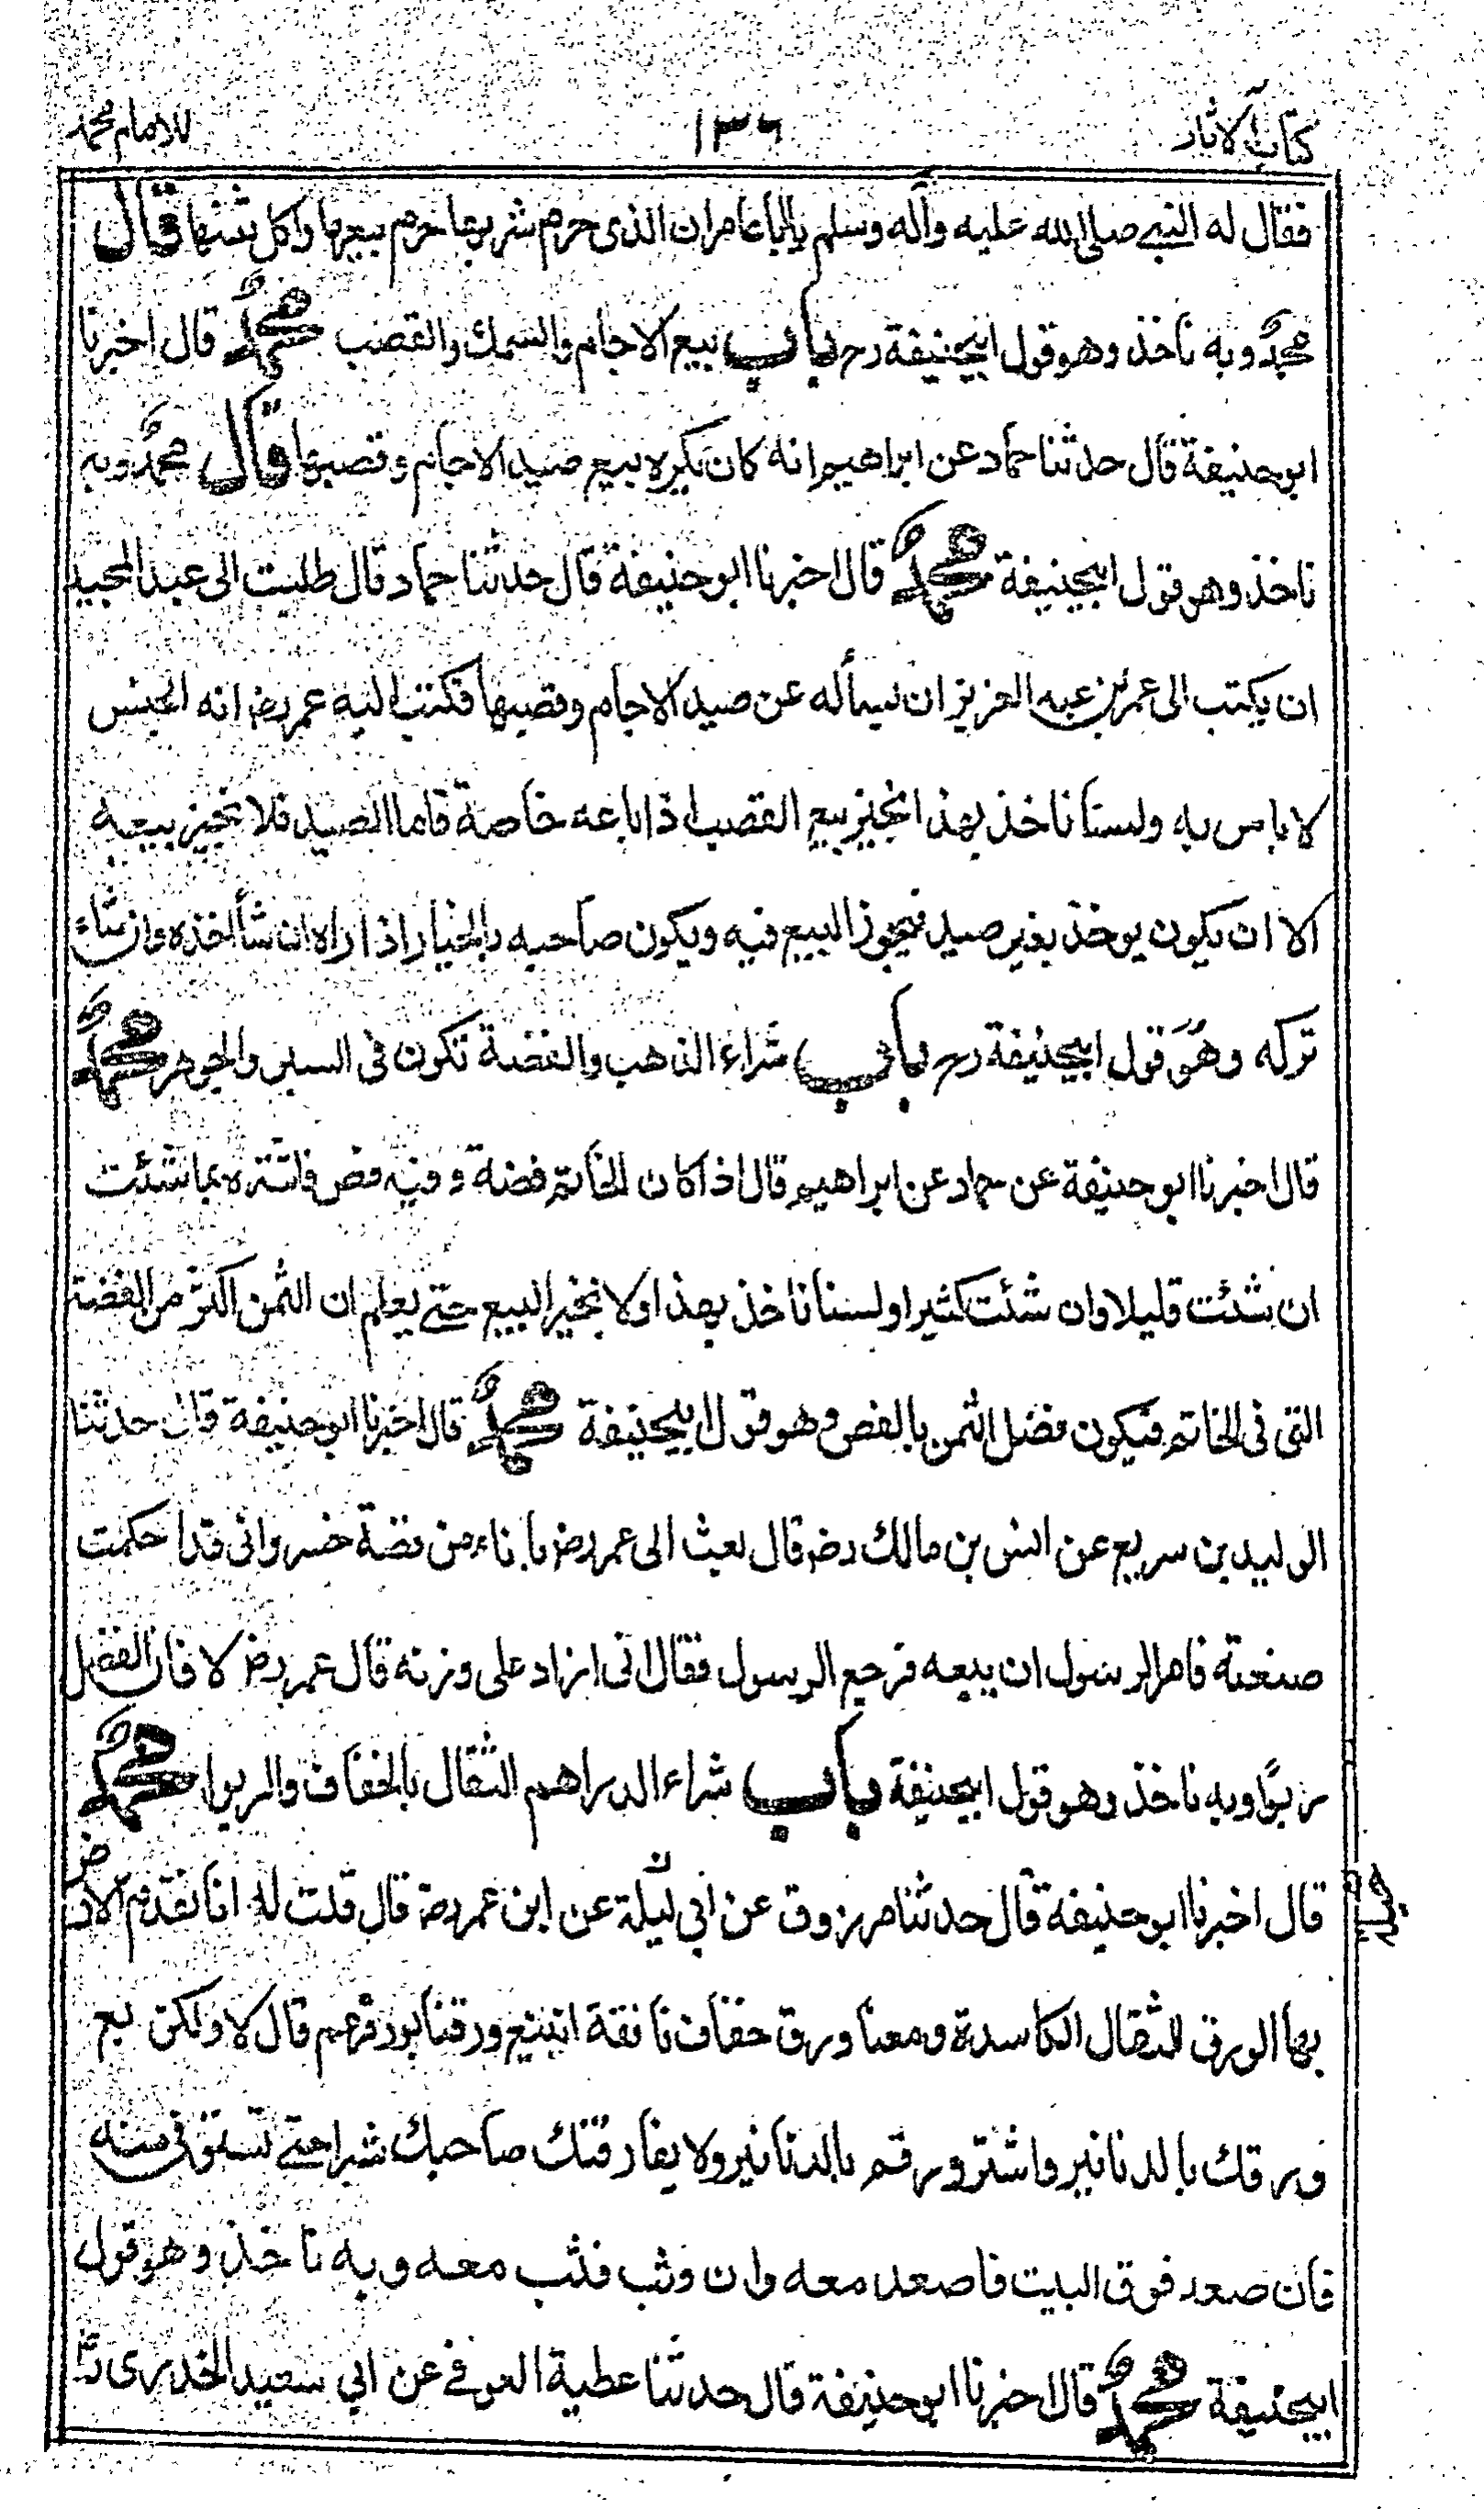 كتاب الاثار ١٣٦ للامام محمد
فقال له النبي صلى الله عليه وآله وسلم يا ابا عامر ان الذى حرم شربها حرم بيعها واكل ثمنها قال
محمد وبه ناخذ وهو قول ابيحنيفة رح باب بيع الاجام والسمك والقصب محمد قال اخبرنا
ابو حنيفة قال حدثنا حماد عن ابراهيم انه كان يكره بيع صيد الاجام وقصبها قال محمد وبه
ناخذ وهو قول ابيحنيفة محمد قال اخبرنا ابو حنيفة قال حدثنا حماد قال طلبت الى عبد المجيد
ان يكتب الى عمر بن عبد العزيز ان يسأله عن صيد الاجام وقصبها فكتب اليه عمر رض انه الحبس
لا باس به ولسنا ناخذ بهذا نجيز بيع القصب اذا باعه خاصة فاما الصيد فلا نجيز بيعه
الا ان يكون يوخذ بغير صيد فيجوز البيع فيه ويكون صاحبه بالخيار اذا راه ان شأ اخذه وان شاء
تركه وهو قول ابيحنيفة رح باب شراء الذهب والفضة تكون فى السبر والجوهر محمد
قال اخبرنا ابو حنيفة عن حماد عن ابراهيم قال اذا كان الخاتم فضة وفيه فص فاشتره بما شئت
ان شئت قليلا وان شئت كثيرا ولسنا ناخذ بهذا ولا نجيز البيع حتے يعلم ان الثمن اكثر من الفضة
التى فى الخاتم فيكون فضل الثمن بالفص وهو قول ابيحنيفة محمد قال اخبرنا ابو حنيفة قال حدثنا
الوليد بن سريع عن انس بن مالك رض قال بعث الى عمر رض باناء من فضة خسروانى قد احكمت
صنعته فامر الرسول ان يبيعه فرجع الرسول فقال انى ازاد على وزنه قال عمر رض لا فان الفضل
ربوا وبه ناخذ وهو قول ابيحنيفة باب شراء الدراهم الثقال بالخفاف والربوا محمد
قال اخبرنا ابو حنيفة قال حدثنا مرزوق عن ابي ليلة عن ابن عمر رض قال قلت له انا نقدم الارض
بها الورق الثقال الكاسدة ومعنا ورق خفاف نافقة انبيع ورقنا بورقهم قال لا ولكن بع
ورقك بالدنانير واشتر ورقهم بالدنانير ولا يفارقنك صاحبك شبرا حتے تستوفى منه
فان صعد فوق البيت فاصعد معه وان وثب فثب معه وبه ناخذ وهو قول
ابيحنيفة محمد قال اخبرنا ابو حنيفة قال حدثنا عطية العوفے عن ابي سعيد الخدرى